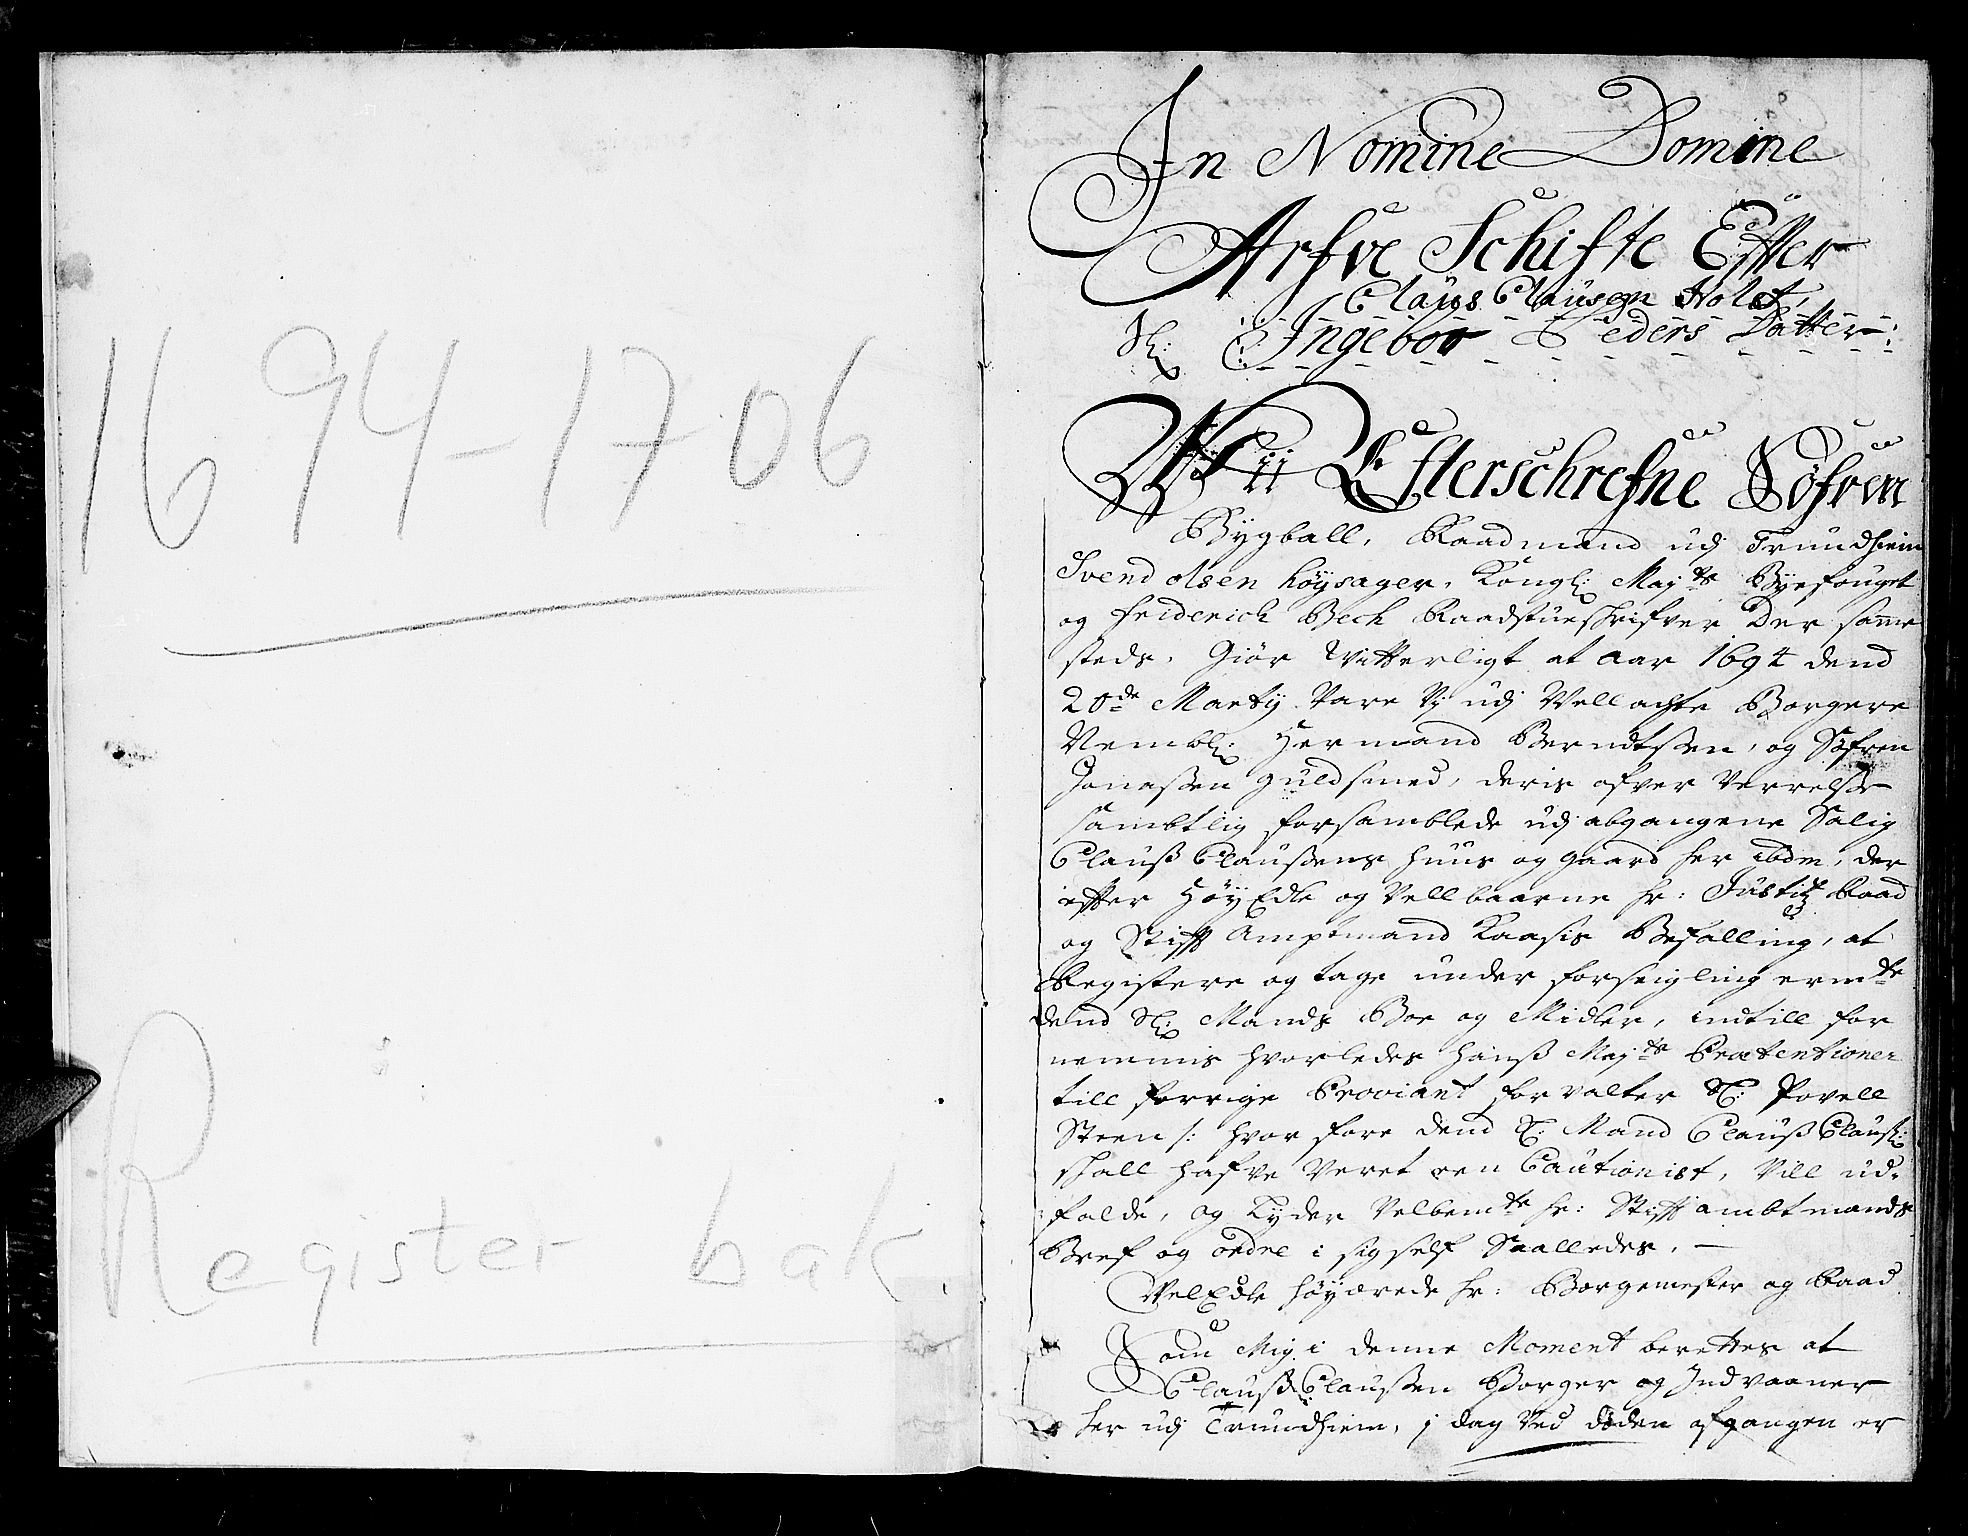 1694-1706
Register bak
In Nomine Domine
Arfve Schifte Effter
Claus Clausen Holst,
Sl: Ingebor Peders Datter:
Wii Efterschrefne Søfren
Bygball, Raadmand udj Trundhiem
Svend olsen høysager, Kongl: Maj:ts Byefouget
og Friderich Bech Raadstueschrifver Der samme
steds, Giør Witterligt at Aar 1694 dend
20de Marty Vare Vj udj Wellachte Borgere
Nembl: Hermand Berndtssen, og Søfren
Jonassen guldsmed, deris ofver Verrelsse
sambtlig forsamblede udj abgangene Salig
Clauss Claussens huus og gaard her ibdm, der
effter HøyEdle og Vellbaarne hr: Justitz Raad
og Stifft Amptmand Kaasis Befalling, at
Registere og tage under forseigling ermte
dend Sl: Mands Boe og Midler, indtill for
nemmis hvorledes hanss Maj:ts Prætentioner
till forrige Proviant forvalter Sl: Povell
Steen /: hvor fore dend Sl: Mand Clauss Clauss:
schall hafve Veret een Cautionist, Vill ud-
falde, og lyder Velbemte hr: Stifftambtmands
Bref og ordre i sig self Saalledes. —
VelEdle høyærede hr: Borgemester og Raad
Som Mig i denne Moment berettes at
Clauss Claussen Borger og Indvaaner
her udj Trundhiem, j dag Ved døden afgangen er